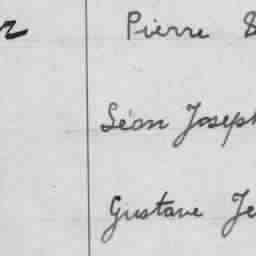 Pierre
Léon Joseph
Gustave Je